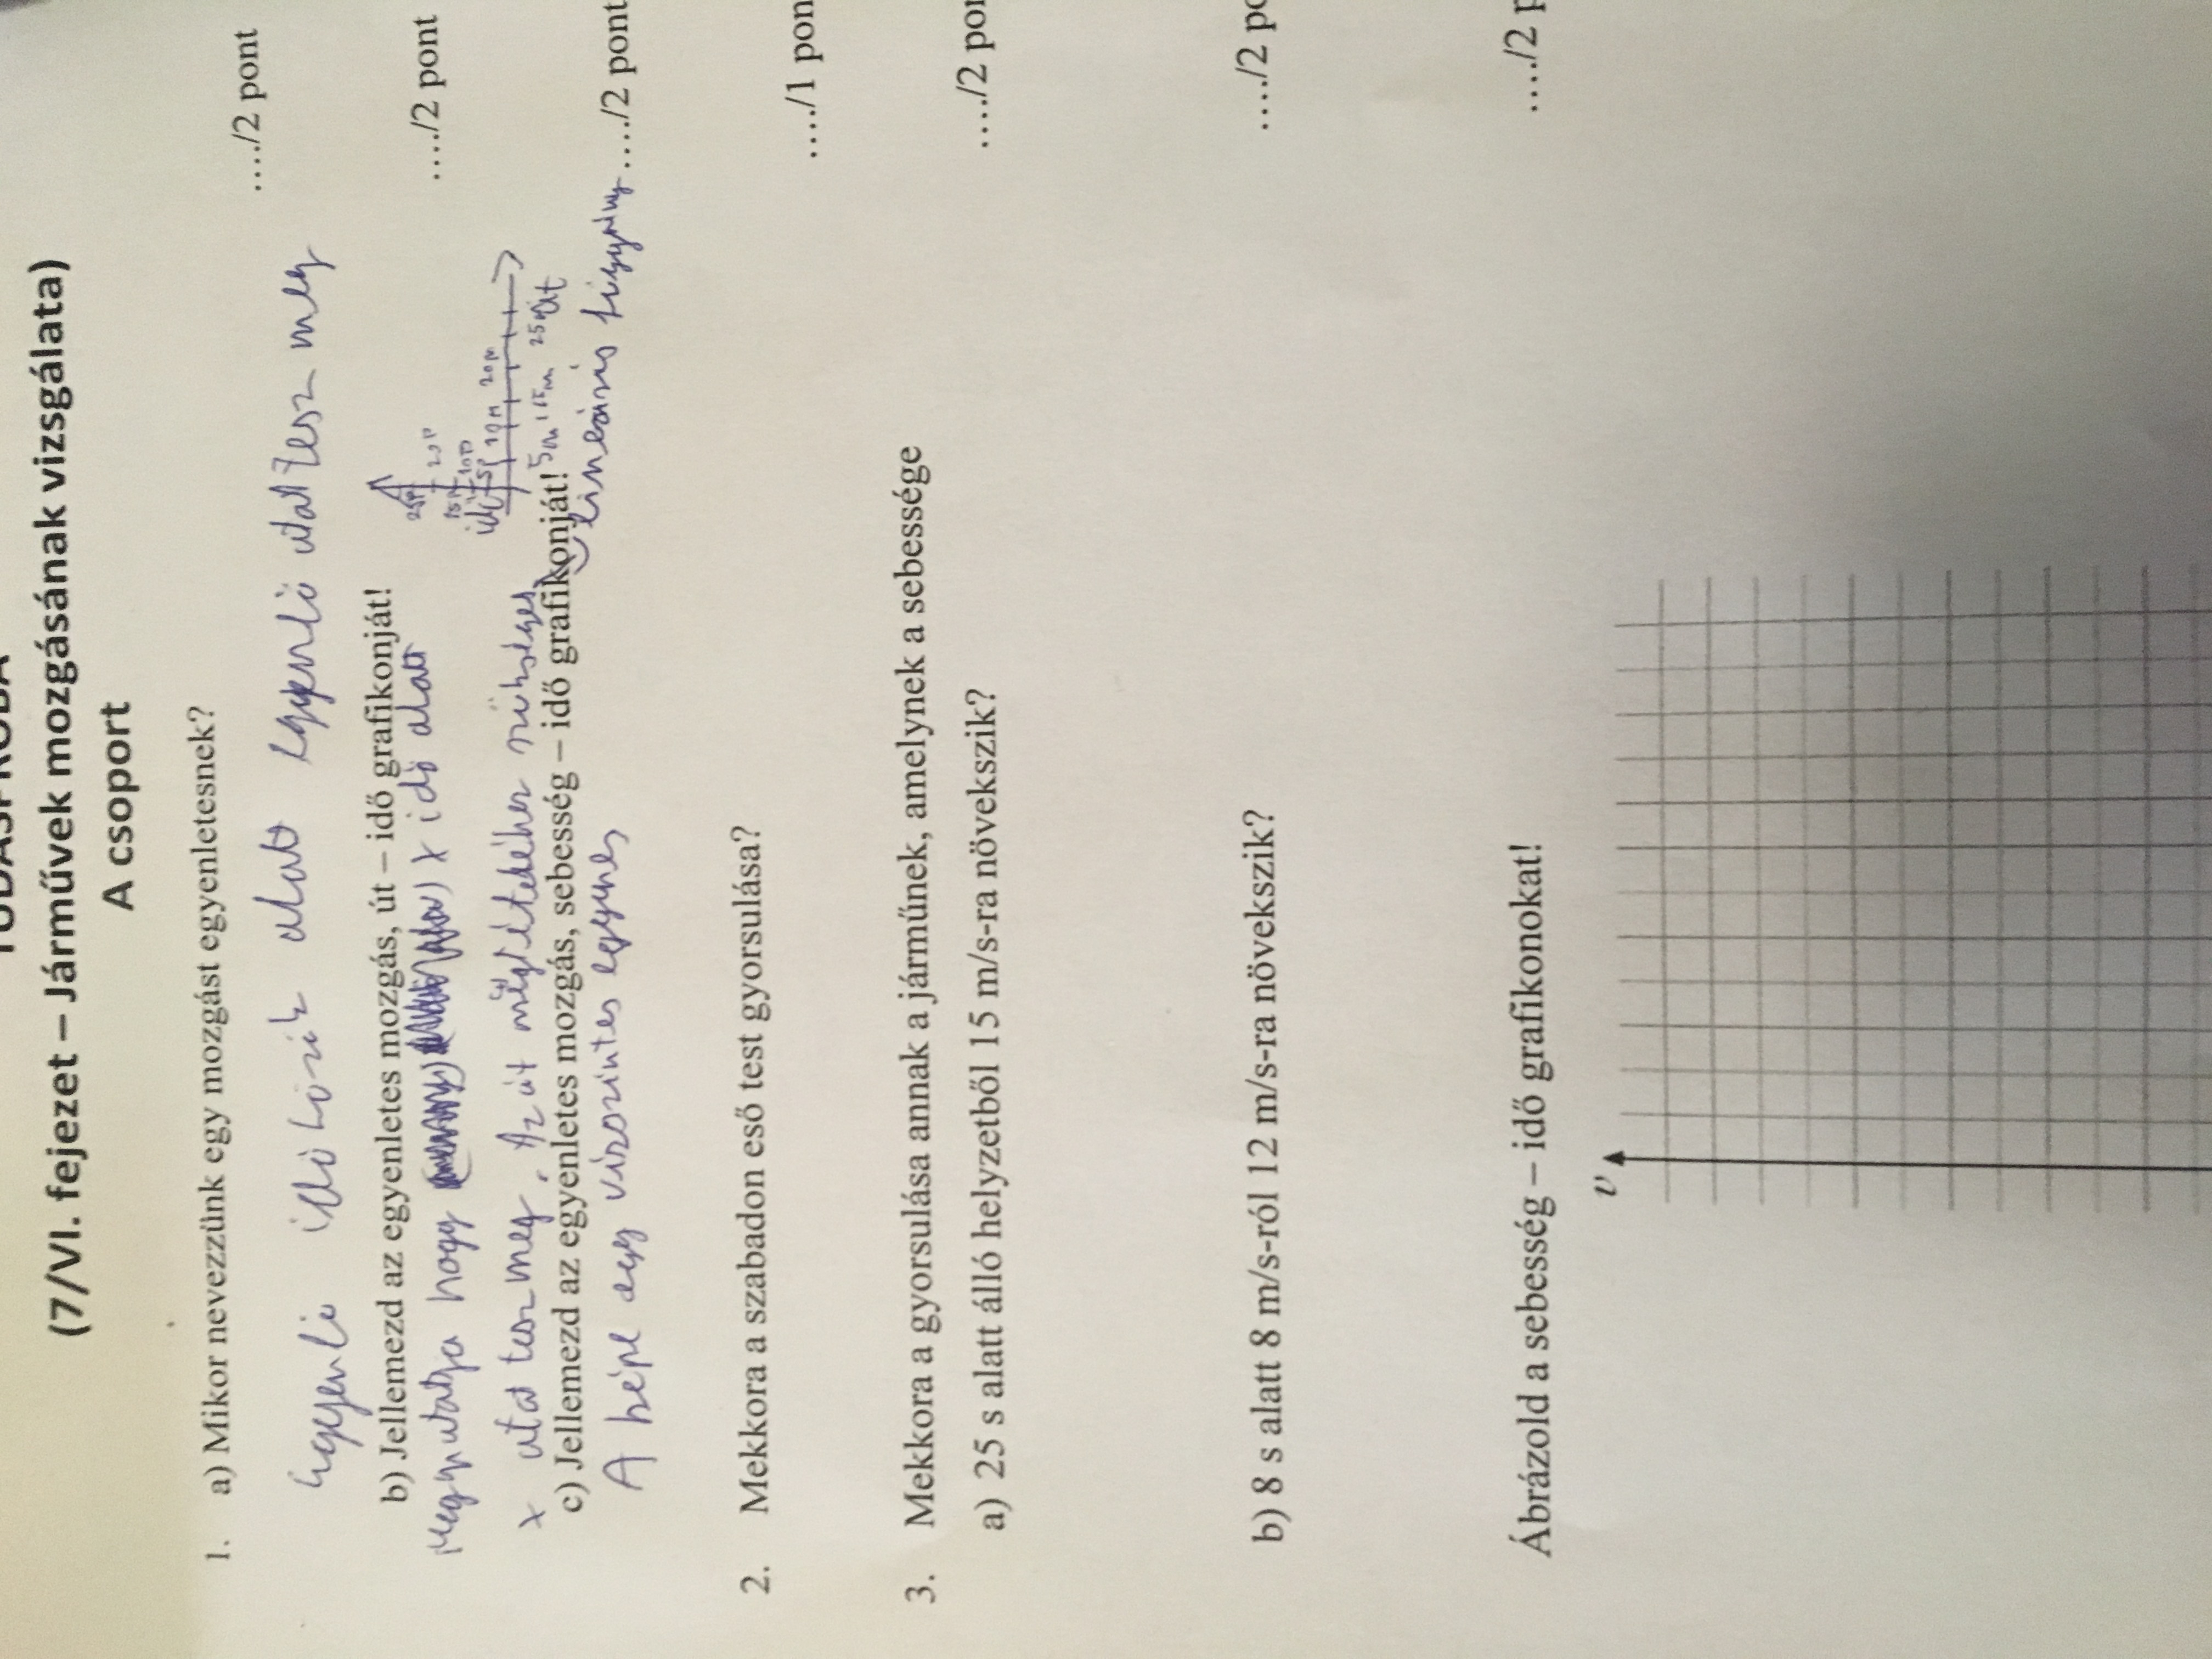 (7/VI. fejezet – Járművek mozgásának vizsgálata)
A csoport
1. a) Mikor nevezzünk egy mozgást egyenletesnek? …./2 pont
egyenlő időközök alatt egyenlő utat tesz meg
b) Jellemezd az egyenletes mozgás, út – idő grafikonját! …./2 pont
Megmutatja hogy x idő alatt
x utat tesz meg. Az út megtételéhez szükséges
c) Jellemezd az egyenletes mozgás, sebesség – idő grafikonját! …./2 pont
lineáris függvény
A képe egy vízszintes egyenes
2. Mekkora a szabadon eső test gyorsulása? …./1 pon
3. Mekkora a gyorsulása annak a járműnek, amelynek a sebessége
a) 25 s alatt álló helyzetből 15 m/s-ra növekszik? …./2 pon
b) 8 s alatt 8 m/s-ról 12 m/s-ra növekszik? …./2 po
Ábrázold a sebesség – idő grafikonokat! …./2 p
v